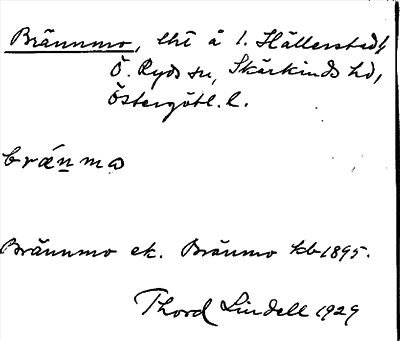 Brännmo, lht å 1. Hällerstad,
Ö. Ryds sn, Skärkinds hd,
Östergötl. l.
brǽn̲ma
Brännmo ek. Bränmo kb 1895.
Thord Lindell 1929